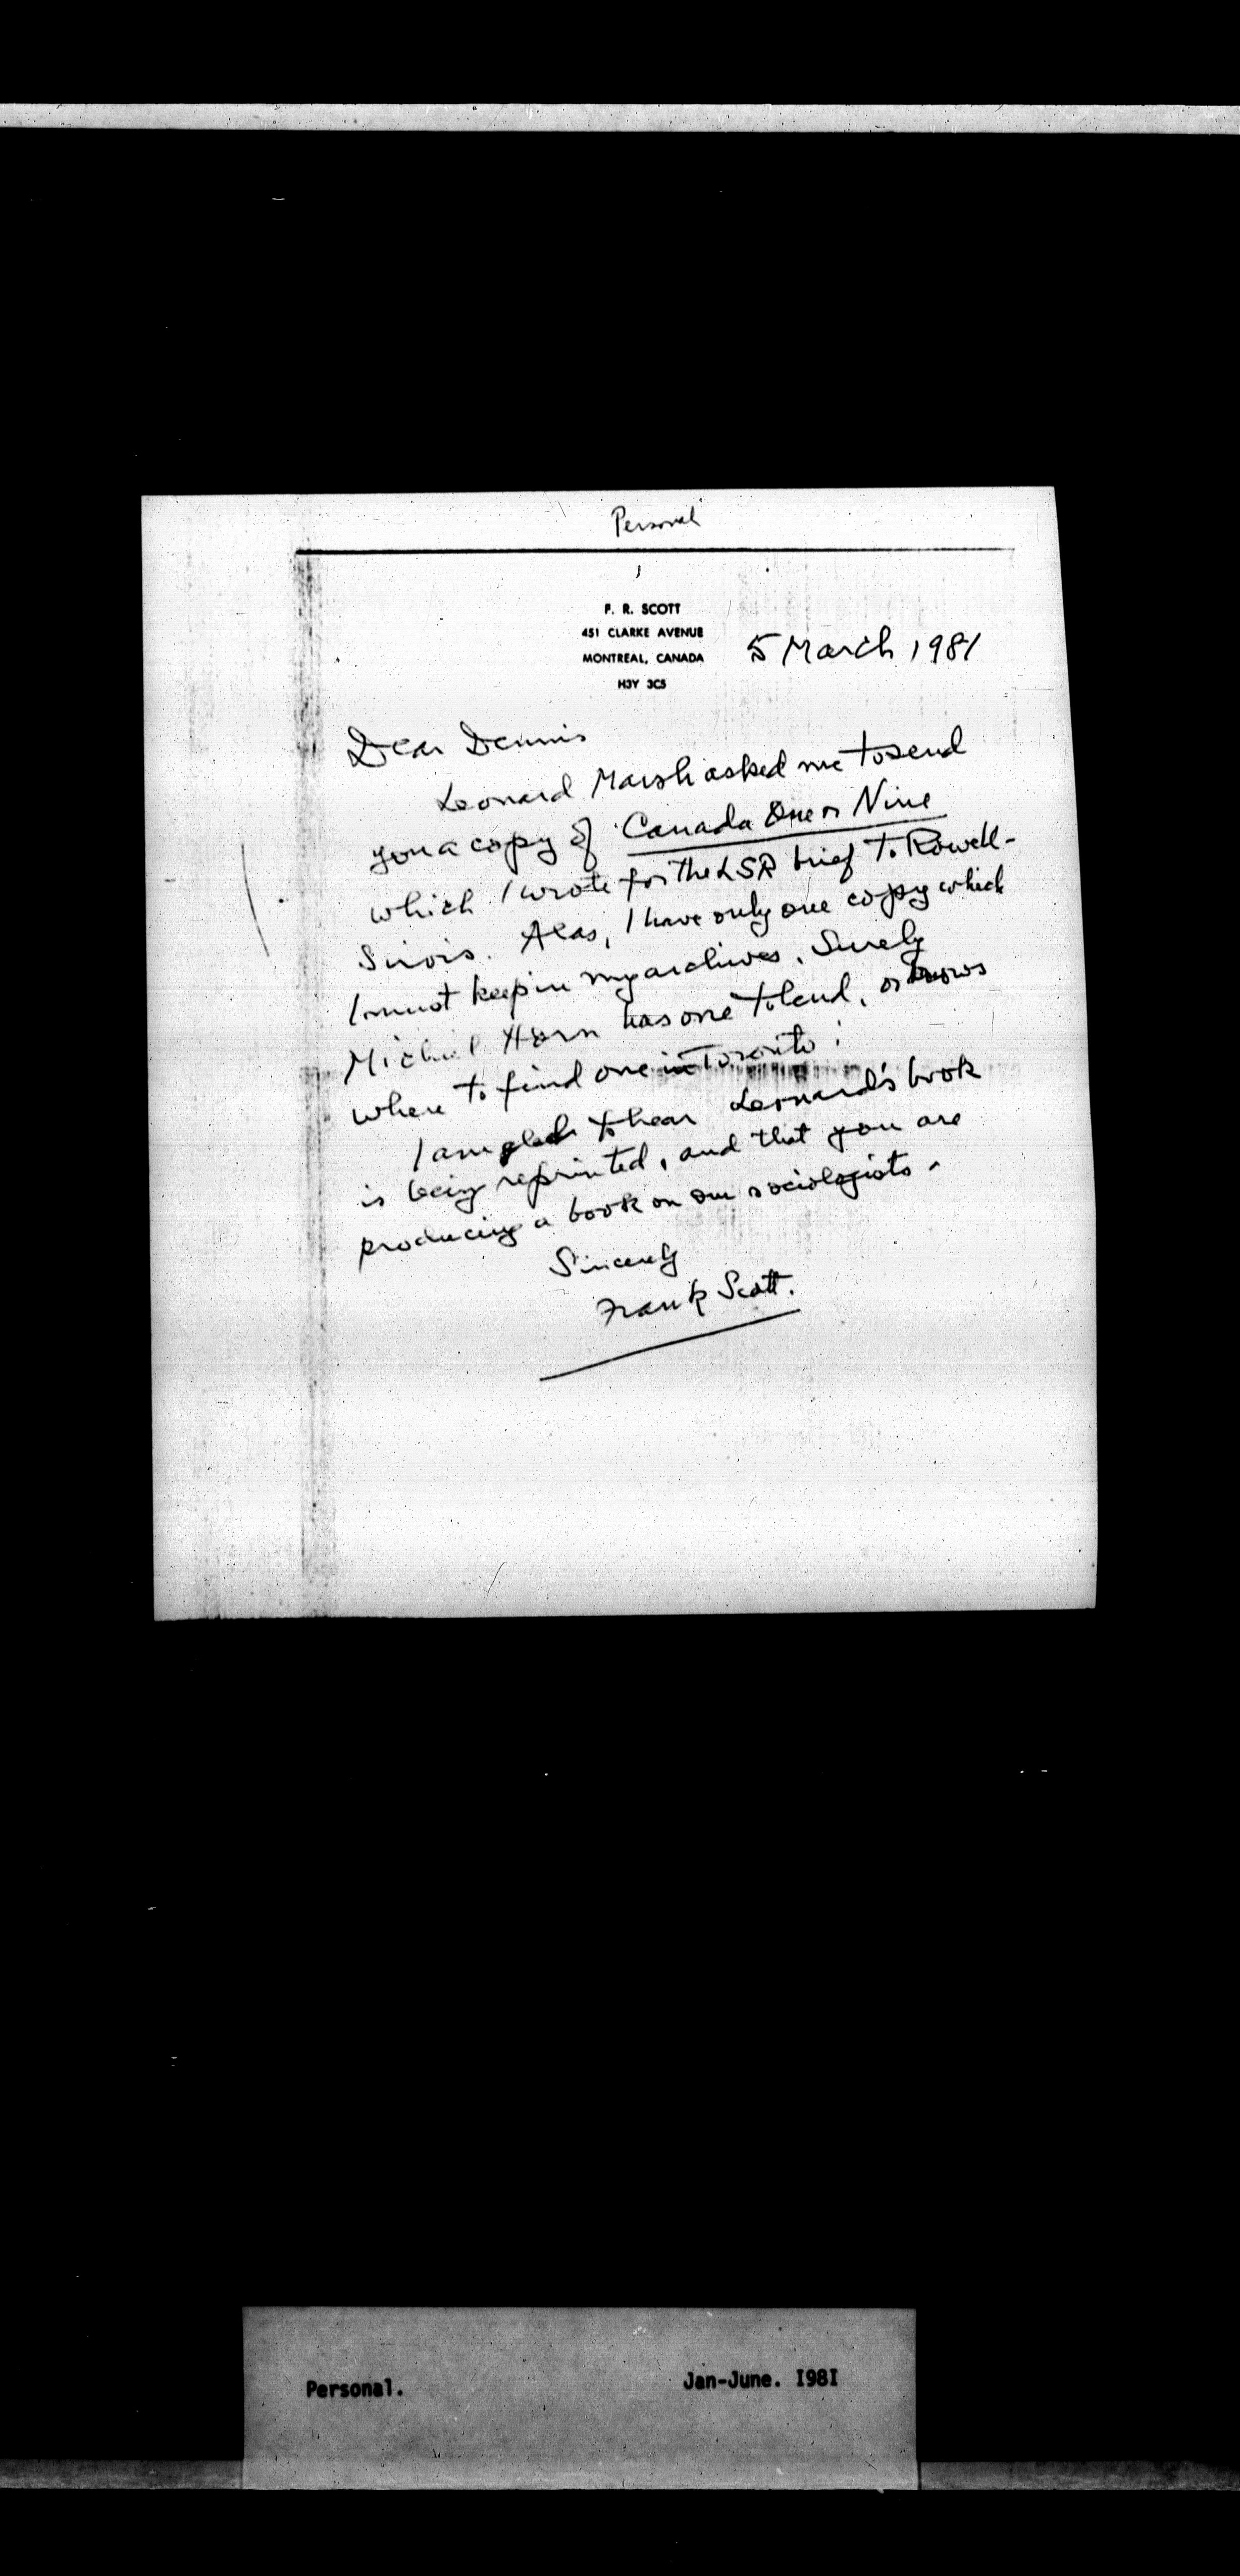 Personal
F. R. SCOTT
451 CLARKE AVENUE
MONTREAL, CANADA
H3Y 3C5
5 March 1981
Dear Dennis
Leonard Marsh asked me to send
you a copy of Canada One or Nine
which I wrote for the LSR brief to Rowell-
Sirois. Alas, I have only one copy which
I must keep in my archives. Surely
Michiel Horn has one to lend, or knows
where to find one in Toronto!
I am glad to hear Leonard's book
is being reprinted, and that you are
producing a book on our sociologists.
Sincerely
Frank Scott.
Personal.
Jan-June. 1981